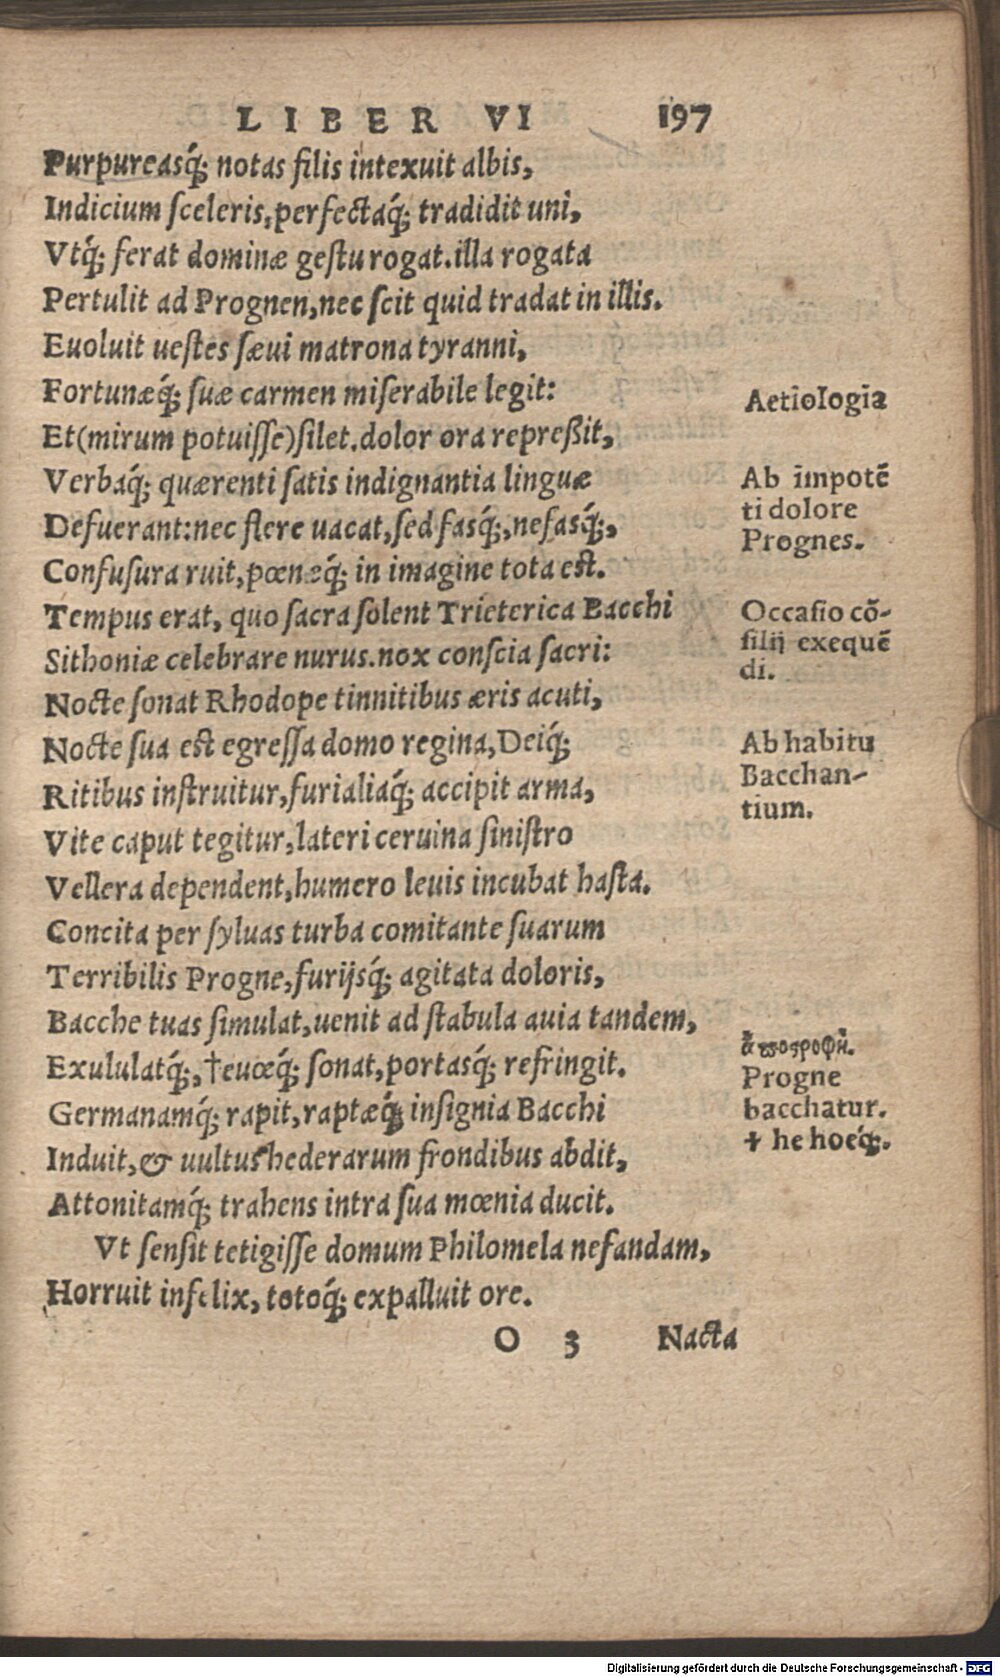 LIBER VI 197
Purpureasq́; notas filis intexuit albis,
Indicium sceleris, perfectaq́; tradidit uni,
Vtq́; ferat dominæ gestu rogat. illa rogata
Pertulit ad Prognen, nec scit quid tradat in illis.
Euoluit uestes sæui matrona tyranni,
Fortunæq́; suæ carmen miserabile legit:
Aetiologia
Et (mirum potuisse) silet. dolor ora repreßit,
Verbaq́; quærenti satis indignantia linguæ
Defuerant: nec flere uacat, sed fasq́;, nefasq́;,
Confusura ruit, pœnæq́; in imagine tota est.
Ab impotē
ti dolore
Prognes.
Tempus erat, quo sacra solent Trieterica Bacchi
Sithoniæ celebrare nurus. nox conscia sacri:
Occasio cō-
silij exequē
di.
Nocte sonat Rhodope tinnitibus æris acuti,
Nocte sua est egressa domo regina, Deiq́;
Ritibus instruitur, furialiaq́; accipit arma,
Ab habitu
Bacchan-
tium.
Vite caput tegitur, lateri ceruina sinistro
Vellera dependent, humero leuis incubat hasta.
Concita per syluas turba comitante suarum
Terribilis Progne, furijsq́; agitata doloris,
Bacche tuas simulat, uenit ad stabula auia tandem,
Exululatq́;, †euœq́; sonat, portasq́; refringit.
Germanamq́; rapit, raptæq́; insignia Bacchi
ἀποστροφή.
Progne
bacchatur.
† he hoeq́;.
Induit, & uultus hederarum frondibus abdit,
Attonitamq́; trahens intra sua mœnia ducit.
Vt sensit tetigisse domum Philomela nefandam,
Horruit infelix, totoq́; expalluit ore.
O 3 Nacta
Digitalisierung gefördert durch die Deutsche Forschungsgemeinschaft - DFG